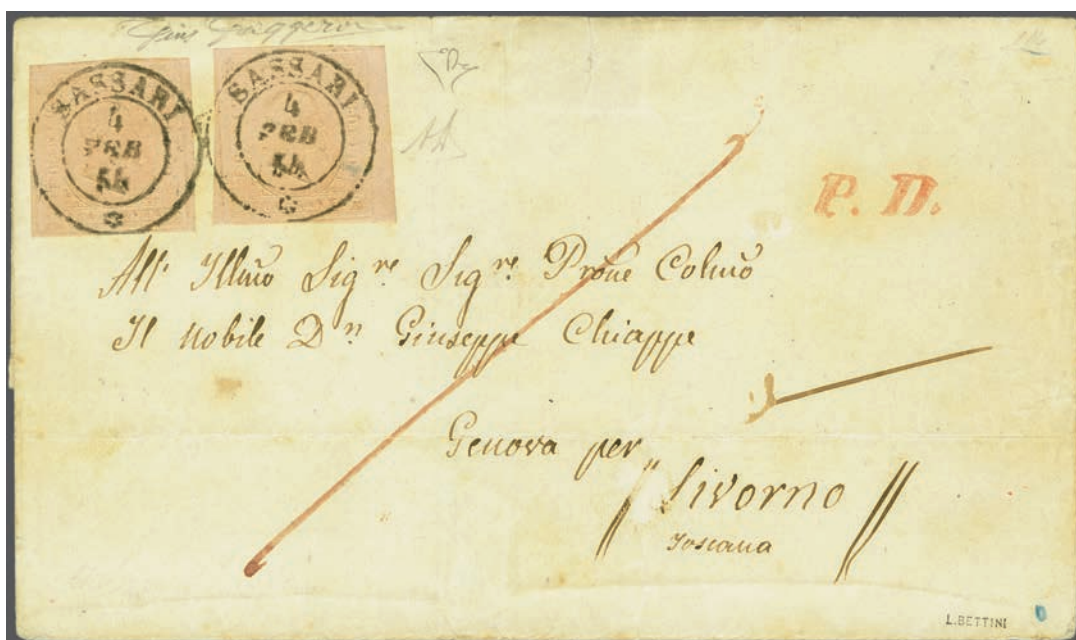 SASSARI
4
FEB
54
SASSARI
4
FEB
54
P. D.
All' Illmo Sigre Sigre Prone Colmo
Il Nobile Dn Giuseppe Chiappe
Genova per
Livorno
Toscana
L.BETTINI